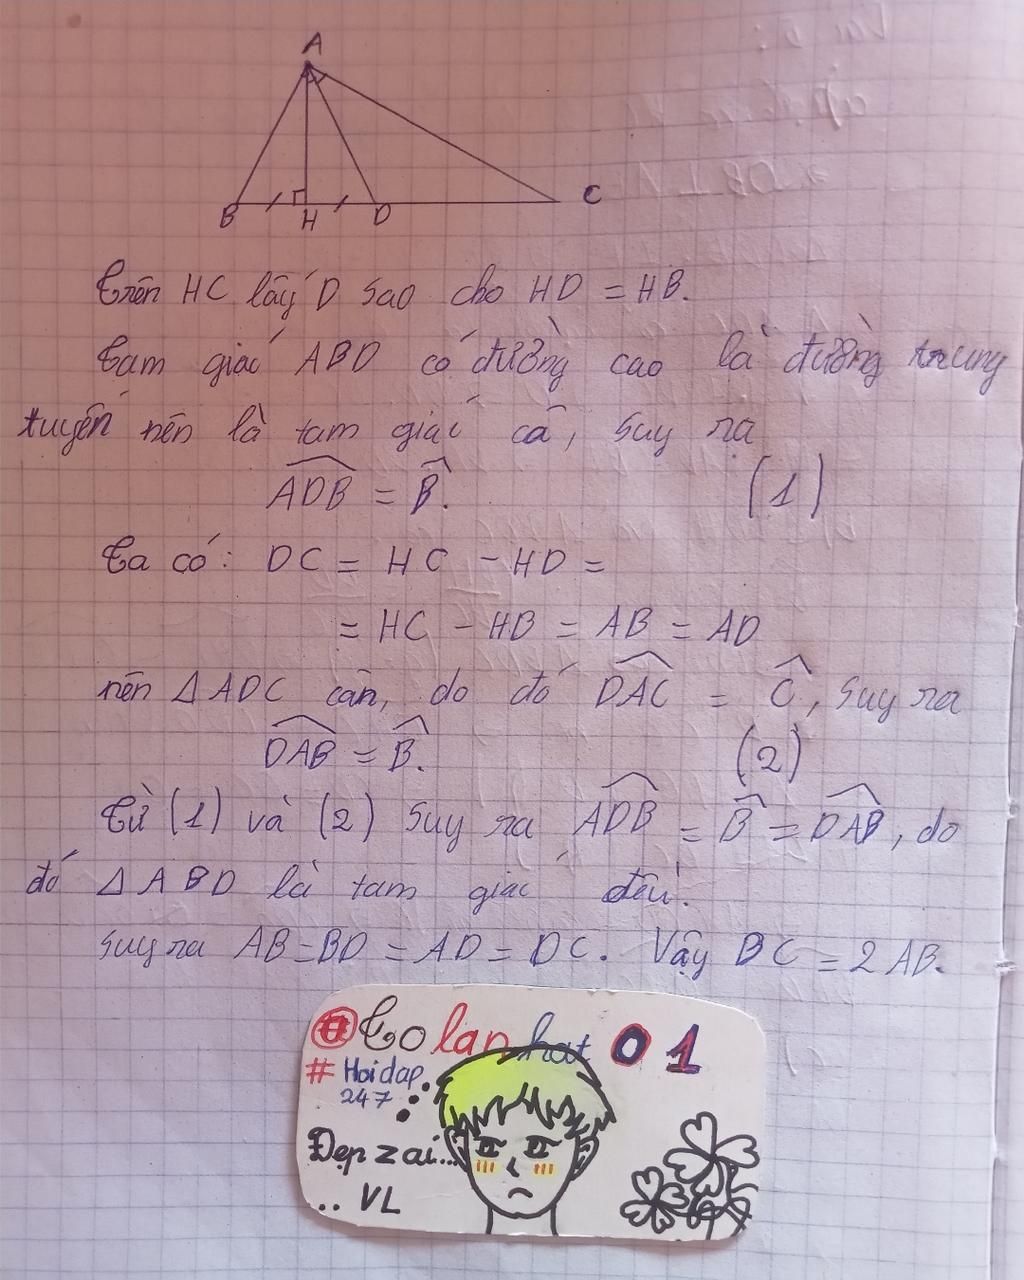 A
B H D C
Trên HC lấy D sao cho HD = HB.
Tam giác ABD có đường cao là đường trung
tuyến nên là tam giác câ, suy ra
ADB = B. (1)
Ta có: DC = HC - HD =
= HC - HB = AB = AD
nên Δ ADC cân, do đó DAC = C, suy ra
DAB = B. (2)
Từ (1) và (2) suy ra ADB = B = DAB, do
đó Δ ABD là tam giác đều.
suy ra AB = BD = AD = DC. Vậy BC = 2 AB.
To lan hat 01
# Hoidap
247
Đẹp zai...
.. VL